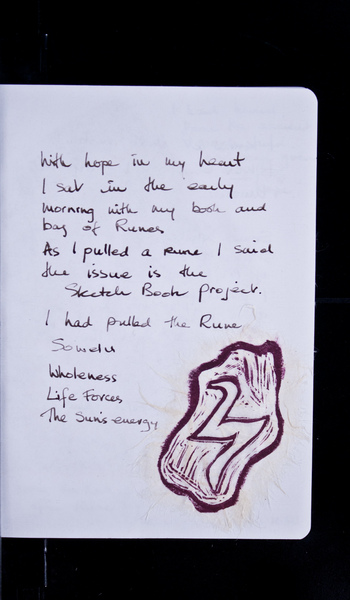 With hope in my heart
I sat in the early
morning with my book and
bag of Runes
As I pulled a rune I said
the issue is the
Sketch Book project.
I had pulled the Rune
Sowelu
Wholeness
Life Forces
The Sun's energy